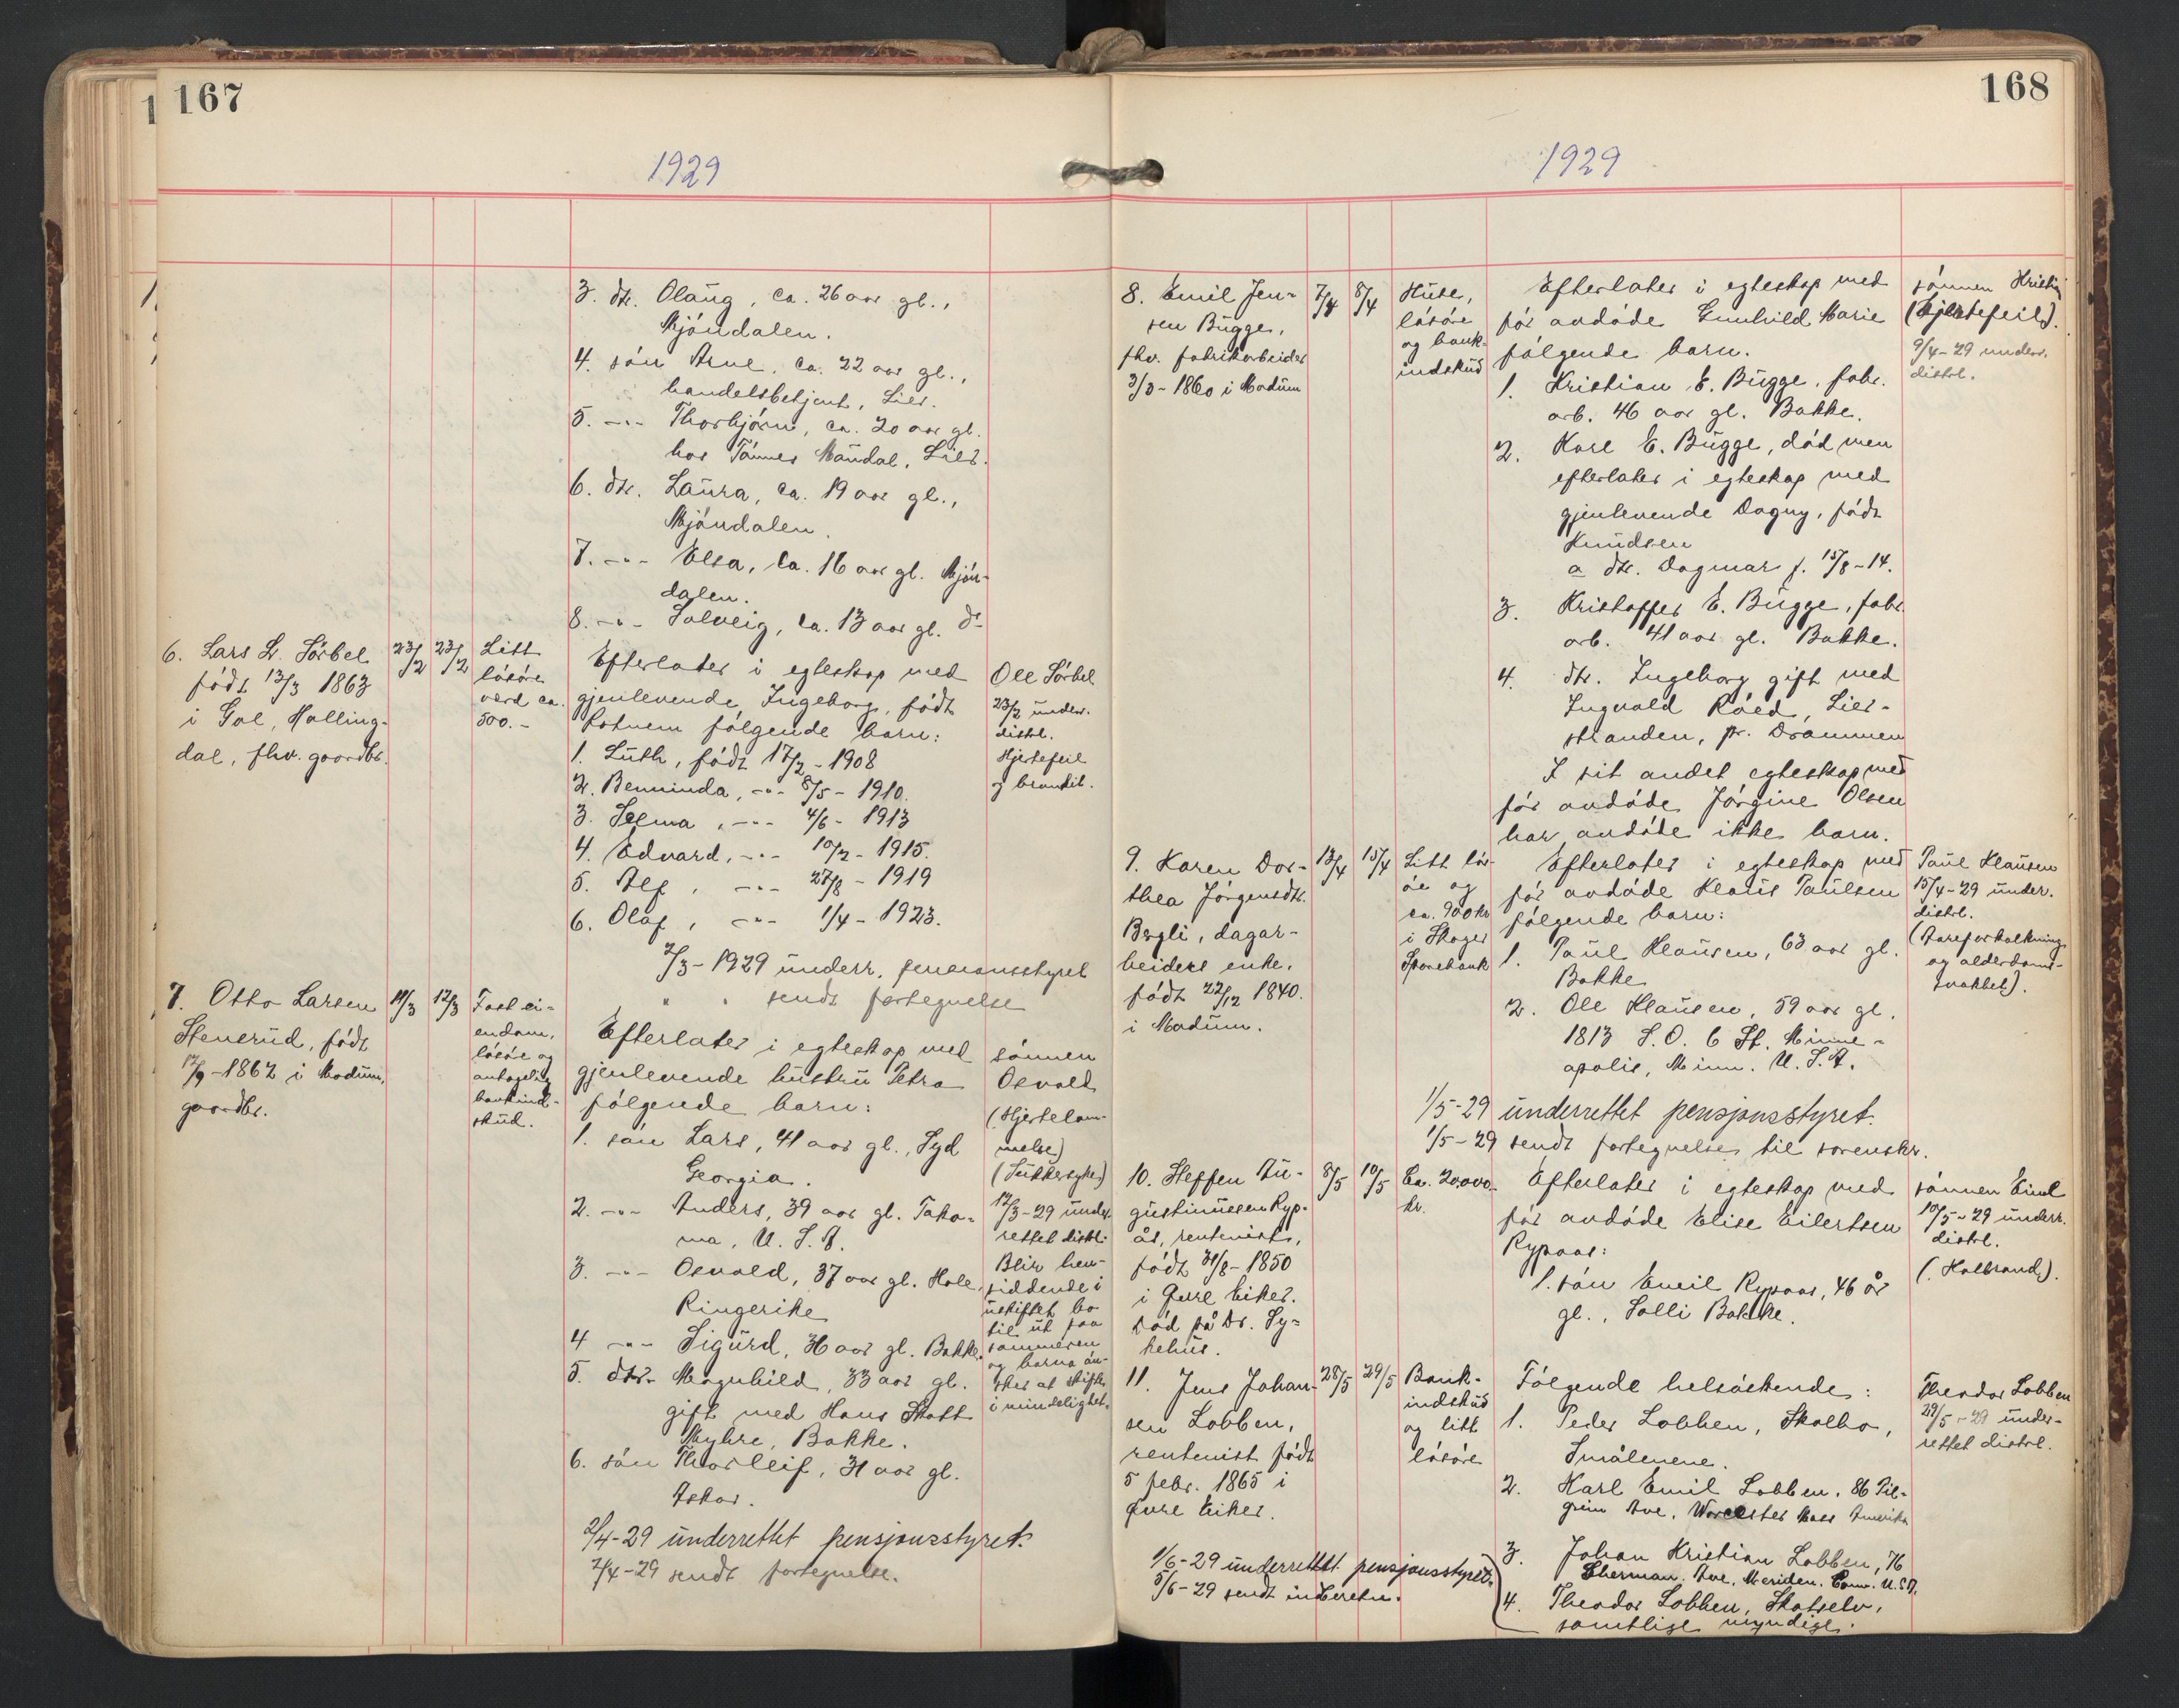 167
1929
3. dtr. Olaug, ca. 26 aar gl.,
Mjöndalen.
4. sön Arne, ca. 22 aar gl.,
handelsbetjent, Lier.
5. -"- Thorbjörn, ca. 20 aar gl.
hos Tännes Mandal, Lier.
6. dtr. Laura, ca. 19 aar gl.,
Mjöndalen.
7. -"- Elsa, ca. 16 aar gl. Mjön-
dalen.
8. -"- Solveig, ca. 13 aar gl. do
6. Lars Lr. Sörbel
född 13/3 1863
i Gol, Halling-
dal, fhv. gaardbr.
23/2
23/2
Litt
lösöre
værd ca.
500.-
Efterlater i egteskap med
gjenlevende Ingeborg, född
Rotnem fölgende barn:
1. Luth, född 17/2 - 1908
2. Benninda, -"- 8/5 - 1910.
3. Selma, -"- 4/6 - 1913
4. Edvard, -"- 10/2 - 1915.
5. Alf, -"- 27/8 - 1919
6. Olaf, -"- 1/4 - 1923.
2/3 - 1929 underr. pensionsstyret
" " sendt fortegnelse
Ole Sörbel
23/2 underr.
distrl.
Hjertefeil
og bronkit.
7. Otto Larsen
Stenerud, född
12/9 - 1862 i Modum,
gaardbr.
11/3
12/3
Fast ei-
endom,
lösöre og
antagelig
bankind-
skud.
Efterlater i egteskap med
gjenlevende hustru Petra
fölgende barn:
1. sön Lars, 41 aar gl., Syd
Georgia.
2. -"- Anders, 39 aar gl. Tako-
ma, U. S. A.
3. -"- Osvald, 37 aar gl. Hole,
Ringerike
4 -"- Sigurd, 36 aar gl. Bakke.
5. dtr. Magnhild, 33 aar gl.
gift med Hans Skott
Myhre, Bakke.
6. sön Thorleif, 31 aar gl.
Asker.
2/4 - 29 underrettet pensjonsstyret.
2/4 - 29 sendt fortegnelse.
sönnen
Osvald
(Hjertelam-
melse)
(Sukkersyke)
12/3 - 29 under-
rettet distrl.
Blir hen-
siddende i
uskiftet bo
til ut paa
sommeren
og barna ön-
sker at skifte
i mindelighet.
168
1929
8. Emil Jen-
sen Bugge,
fhv. fabrikarbeider
3/3 - 1860 i Modum
7/4
8/4
Huse,
lösöre
og bank-
indskud
Efterlater i egteskap med
för avdöde Gunhild Marie
fölgende barn.
1. Kristian E. Bugge, fabr.
arb. 46 aar gl. Bakke.
2. Karl E. Bugge, död men
efterlater i egteskap med
gjenlevende Dagny, född
Knudsen
a dtr. Dagmar f. 15/8 - 14.
3. Kristoffer E. Bugge, fabr.
arb. 41 aar gl. Bakke.
4. dtr. Ingeborg gift med
Ingvald Röed, Lier-
stranden, pr. Drammen
I sit andet egteskap med
för avdöde Jörgine Olsen
har avdöde ikke barn.
sönnen Kristian
(Hjertefeil).
9/4 - 29 underr.
distrl.
9. Karen Dor-
thea Jörgensdtr.
Bergli, dagar-
beiders enke,
född 22/12 1840.
i Modum.
13/4
15/4
Litt lös-
öre og
ca. 900 kr
i Skoger
Sparebank
Efterlater i egteskap med
för avdöde Klaus Paulsen
fölgende barn:
1. Paul Klausen, 63 aar gl.
Bakke
2. Ole Klausen, 59 aar gl.
1813 S. O. 6 St. Minne-
apolis, Minn. U. S. A.
1/5 - 29 underrettet pensjonsstyret.
1/5 - 29 sendt fortegnelse til sorenskr.
Paul Klausen
15/4 - 29 under.
distrl.
(Aareforkalkning
og alderdoms-
svakhet).
10. Steffen Au-
gustinussen Ryp-
ås, rentenist,
född 31/8 - 1850
i Övre Eiker.
Död på Dr. Sy-
kehus.
8/5
10/5
Ca. 20.000.-
kr.
Efterlater i egteskap med
för avdöde Elise Eilertsen
Rypaas:
1. sön Emil Rypaas, 46 år
gl., Solli Bakke.
sönnen Emil
10/5 - 29 underr.
distrl.
(Kolbrand).
11. Jens Johan-
sen Lobben,
rentenist född
5 febr. 1865 i
Övre Eiker.
28/5
29/5
Bank-
indskud
og litt
lösöre
Fölgende helsöskende:
1. Peder Lobben, Skolbo,
Smålenene.
2. Karl Emil Lobben, 86 Pil-
grim Ave. Worcester Mass Amerika
3. Johan Kristian Lobben, 76
Sherman. Ave. Meriden. Conn. U.S.A.
4. Theodor Lobben, Skotselv,
samtlige myndige.
Theodor Lobben
29/5 - 29 under-
rettet distrl.
1/6 - 29 underrettet pensjonsstyret.
5/6 - 29 sendt inberetn.